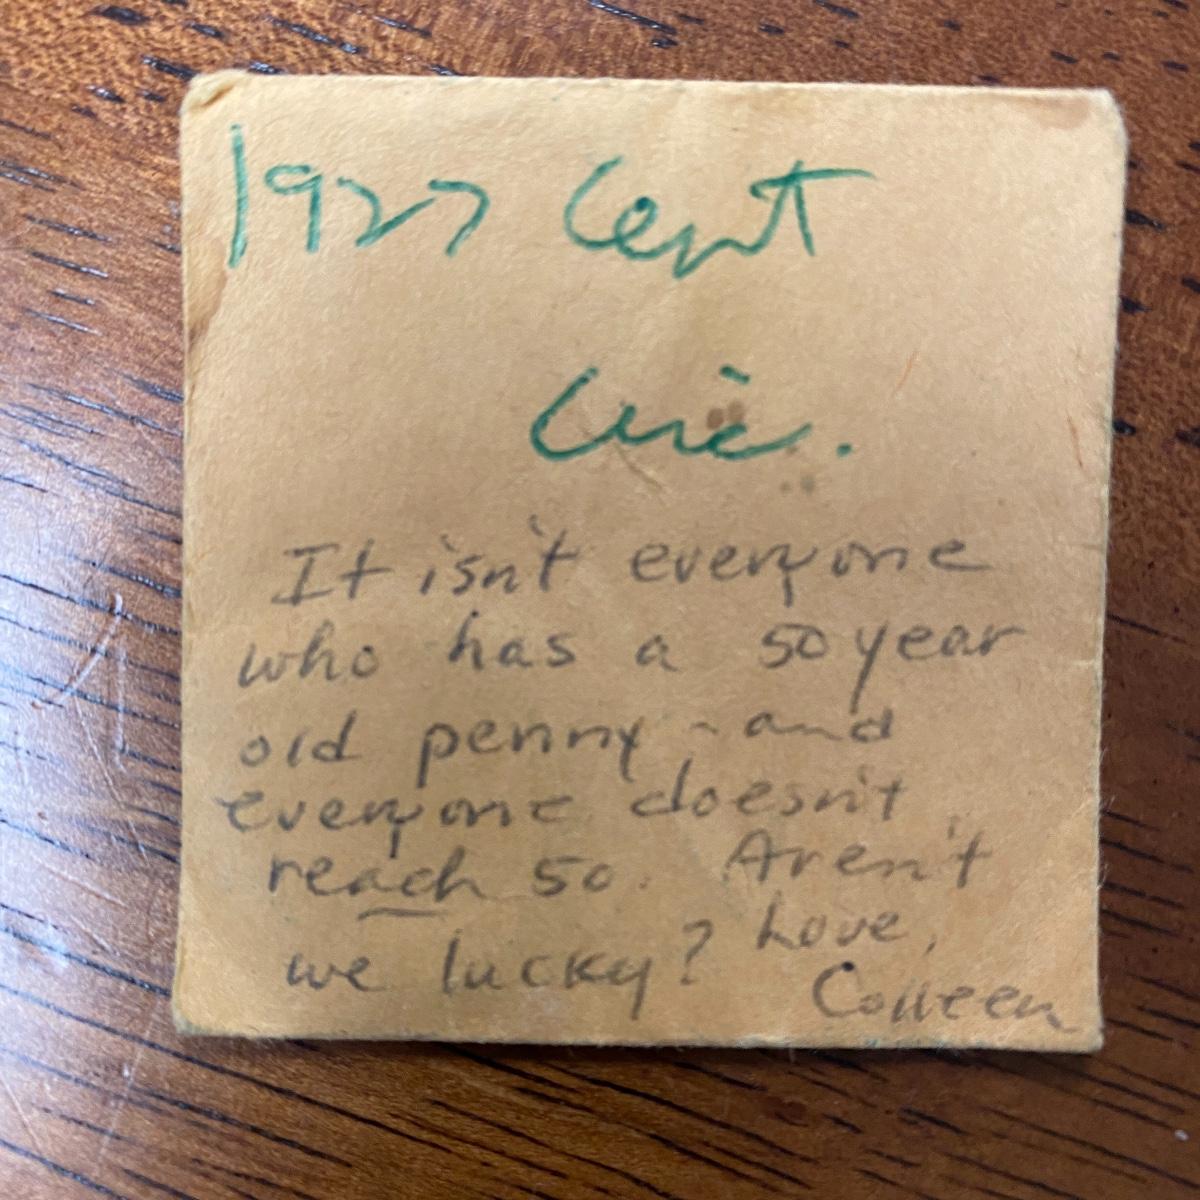 1927 Cent
Circ.
It isn't everyone
who has a 50 year
old penny - and
everyone doesn't
reach 50. Aren't
we lucky? Love,
Colleen